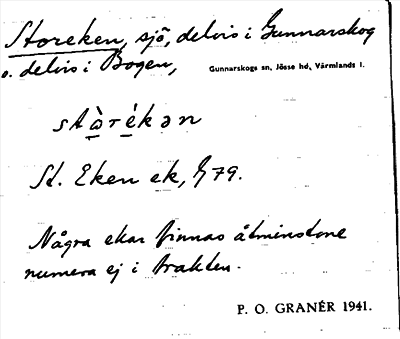 Storeken, sjö, delvis i Gunnarskog
o. delvis i Bogen, Gunnarskogs sn, Jösse hd, Värmlands l.
stòrékən
St. Eken ek, G 79.
Några ekar finnas åtminstone
numera ej i trakten.
P. O. GRANÉR 1941.